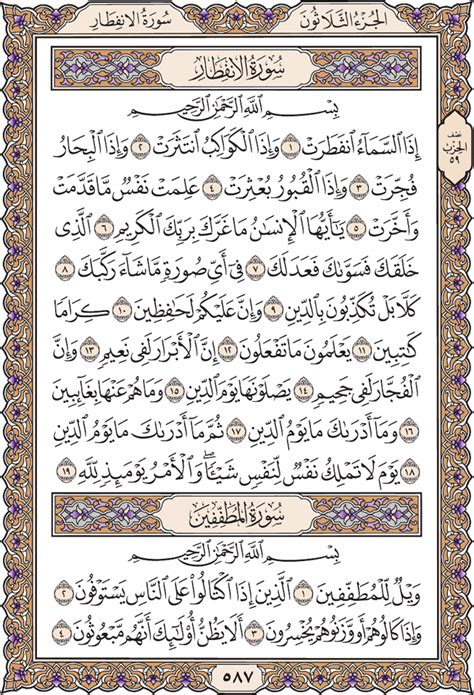 الجُزءُ الثَّلاثُونَ
سُورَةُ الانفِطَارِ
نصف
الحزب
٥٩
سُورَةُ الانفِطَارِ
بِسْمِ ٱللَّهِ ٱلرَّحْمَٰنِ ٱلرَّحِيمِ
إِذَا ٱلسَّمَآءُ ٱنفَطَرَتْ ١ وَإِذَا ٱلْكَوَاكِبُ ٱنتَثَرَتْ ٢ وَإِذَا ٱلْبِحَارُ
فُجِّرَتْ ٣ وَإِذَا ٱلْقُبُورُ بُعْثِرَتْ ٤ عَلِمَتْ نَفْسٌ مَّا قَدَّمَتْ
وَأَخَّرَتْ ٥ يَٰٓأَيُّهَا ٱلْإِنسَٰنُ مَا غَرَّكَ بِرَبِّكَ ٱلْكَرِيمِ ٦ ٱلَّذِى
خَلَقَكَ فَسَوَّىٰكَ فَعَدَلَكَ ٧ فِىٓ أَىِّ صُورَةٍ مَّا شَآءَ رَكَّبَكَ ٨
كَلَّا بَلْ تُكَذِّبُونَ بِٱلدِّينِ ٩ وَإِنَّ عَلَيْكُمْ لَحَٰفِظِينَ ١٠ كِرَامًا
كَٰتِبِينَ ١١ يَعْلَمُونَ مَا تَفْعَلُونَ ١٢ إِنَّ ٱلْأَبْرَارَ لَفِى نَعِيمٍ ١٣ وَإِنَّ
ٱلْفُجَّارَ لَفِى جَحِيمٍ ١٤ يَصْلَوْنَهَا يَوْمَ ٱلدِّينِ ١٥ وَمَا هُمْ عَنْهَا بِغَآئِبِينَ
١٦ وَمَآ أَدْرَىٰكَ مَا يَوْمُ ٱلدِّينِ ١٧ ثُمَّ مَآ أَدْرَىٰكَ مَا يَوْمُ ٱلدِّينِ
١٨ يَوْمَ لَا تَمْلِكُ نَفْسٌ لِّنَفْسٍ شَيْـًٔا ۖ وَٱلْأَمْرُ يَوْمَئِذٍ لِّلَّهِ ١٩
سُورَةُ المُطَفِّفِينَ
بِسْمِ ٱللَّهِ ٱلرَّحْمَٰنِ ٱلرَّحِيمِ
وَيْلٌ لِّلْمُطَفِّفِينَ ١ ٱلَّذِينَ إِذَا ٱكْتَالُوا۟ عَلَى ٱلنَّاسِ يَسْتَوْفُونَ ٢
وَإِذَا كَالُوهُمْ أَو وَّزَنُوهُمْ يُخْسِرُونَ ٣ أَلَا يَظُنُّ أُو۟لَٰٓئِكَ أَنَّهُم مَّبْعُوثُونَ ٤
٥٨٧